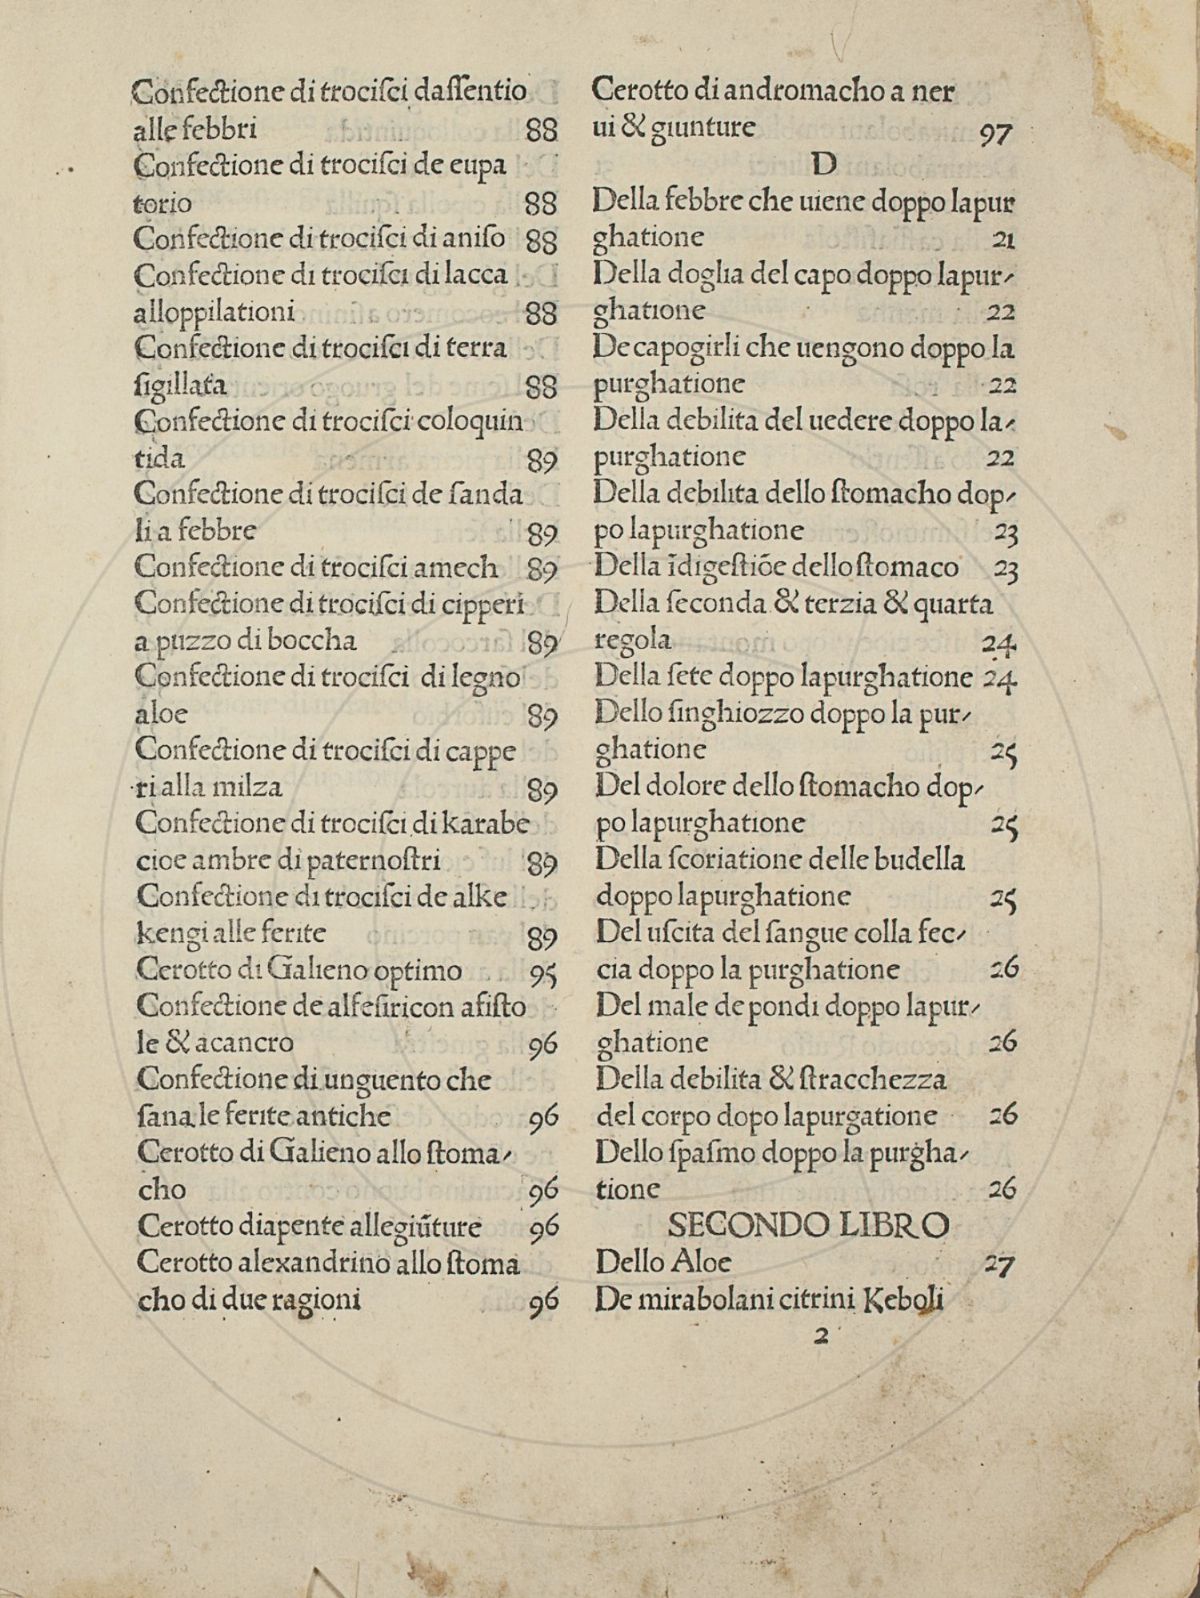 Confectione di trociſci daſſentio
alle febbri 88
Confectione di trociſci de eupa
torio 88
Confectione di trociſci di aniſo 88
Confectione di trociſci di lacca
alloppilationi 88
Confectione di trociſci di terra
ſigillata 88
Confectione di trociſci coloquin
tida 89
Confectione di trociſci de ſanda
li a febbre 89
Confectione di trociſci amech 89
Confectione di trociſci di cipperi
a puzzo di boccha 89
Confectione di trociſci di legno
aloe 89
Confectione di trociſci di cappe
ri alla milza 89
Confectione di trociſci di karabe
cioe ambre di paternoſtri 89
Confectione di trociſci de alke
kengi alle ferite 89
Cerotto di Galieno optimo 95
Confectione de alfeſiricon afiſto
le & acancro 96
Confectione di unguento che
ſana le ferite antiche 96
Cerotto di Galieno allo ſtoma-
cho 96
Cerotto diapente allegiūture 96
Cerotto alexandrino allo ſtoma
cho di due ragioni 96
Cerotto di andromacho a ner
ui & giunture 97
D
Della febbre che uiene doppo lapur
ghatione 21
Della doglia del capo doppo lapur-
ghatione 22
De capogirli che uengono doppo la
purghatione 22
Della debilita del uedere doppo la-
purghatione 22
Della debilita dello ſtomacho dop-
po lapurghatione 23
Della īdigeſtiōe dello ſtomaco 23
Della ſeconda & terzia & quarta
regola 24
Della ſete doppo lapurghatione 24
Dello ſinghiozzo doppo la pur-
ghatione 25
Del dolore dello ſtomacho dop-
po lapurghatione 25
Della ſcoriatione delle budella
doppo lapurghatione 25
Del uſcita del ſangue colla fec-
cia doppo la purghatione 26
Del male de pondi doppo lapur-
ghatione 26
Della debilita & ſtracchezza
del corpo dopo lapurgatione 26
Dello ſpaſmo doppo la purgha-
tione 26
SECONDO LIBRO
Dello Aloe 27
De mirabolani citrini Keboli
2